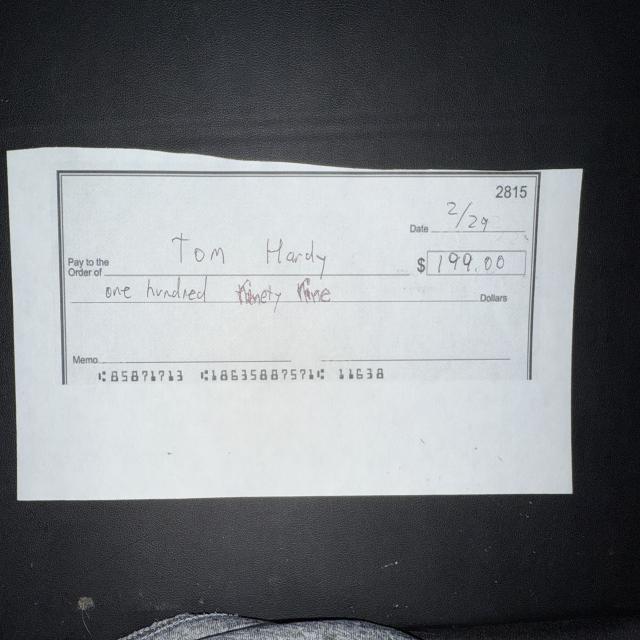 2815
Date 2/29
Pay to the
Order of Tom Hardy $ 199.00
one hundred ninety nine Dollars
Memo
⑆85871713 ⑆186358875710⑆ 11638